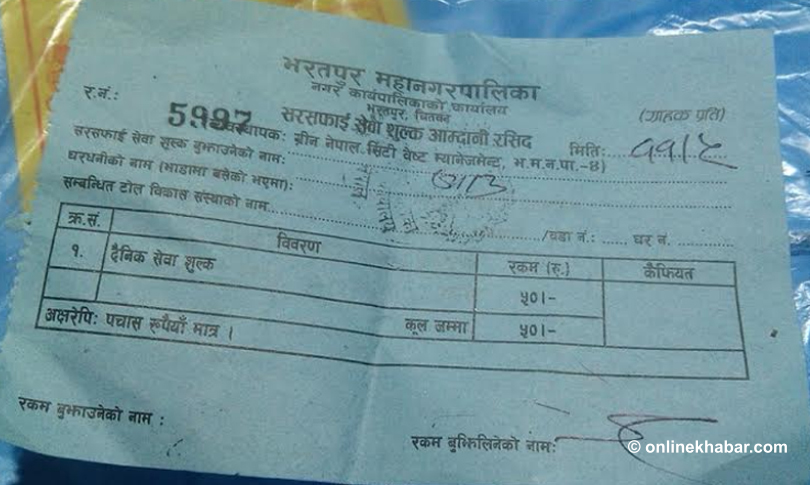 भरतपुर महानगरपालिका
नगर कार्यपालिकाको कार्यालय
भरतपुर, चितवन
र.नं.: 5997
सरसफाई सेवा शुल्क आम्दानी रसिद
(ग्राहक प्रति)
व्यवस्थापक: ग्रीन नेपाल सिटी वेष्ट म्यानेजमेन्ट, भ.म.न.पा.-४)
मिति: ११।९
सरसफाई सेवा शुल्क बुझाउनेको नाम:
घरधनीको नाम (भाडामा बसेको भएमा):
सम्बन्धित टोल विकास संस्थाको नाम /वडा नं.: घर नं.
क्र.सं. विवरण रकम (रु.) कैफियत
१. दैनिक सेवा शुल्क ५०।-
अक्षरेपि: पचास रूपैयाँ मात्र । कूल जम्मा ५०।-
रकम बुझाउनेको नाम :
रकम बुझिलिनेको नाम:
© onlinekhabar.com